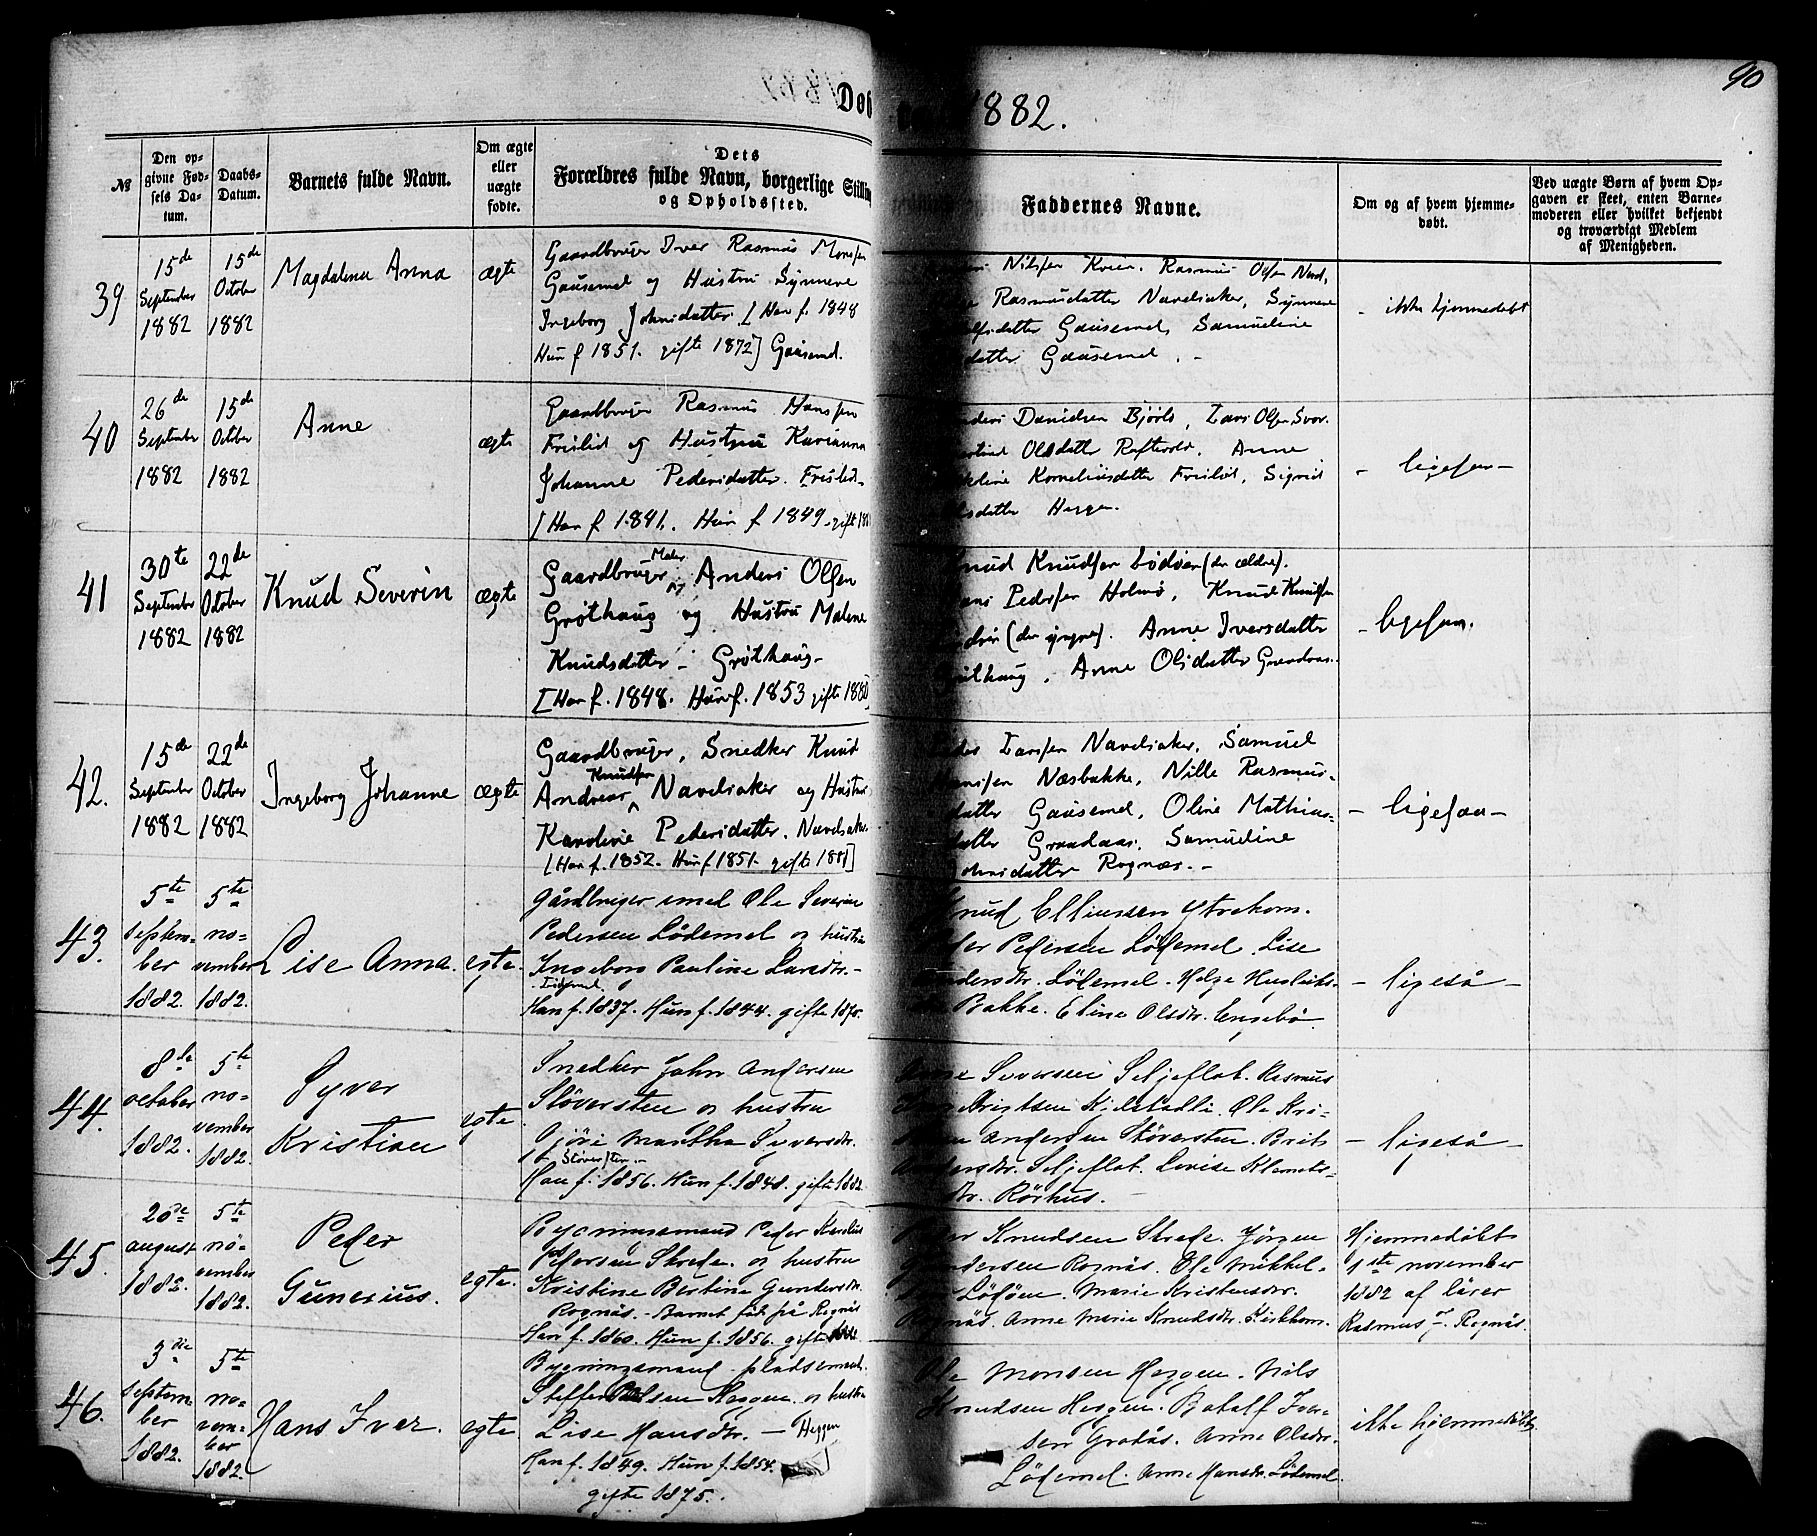 90
Døb 1882.
№
Den op-
givne Fød-
sels Da-
tum.
Daabs-
Datum.
Barnets fulde Navn.
Om ægte
eller
uægte
fødte.
Dets
Forældres fulde Navn, borgerlige Stilling
og Opholdssted.
Faddernes Navne.
Om og af hvem hjemme-
døbt.
Ved uægte Børn af hvem Op-
gaven er skeet, enten Barne-
moderen eller hvilket bekjendt
og troværdigt Medlem
af Menigheden.
39
15de
September
1882
15de
October
1882
Magdalena Anna
ægte
Gaardbruger Iver Rasmus Monsen
Gausemel og Hustru Synneve
Ingeborg Johnsdatter. [Han f. 1848
Hun f 1851. gifte 1872] Gausemel.
Nilsen Kvien. Rasmus Olsen Nord,
Rasmusdatter Navelsaker, Synneve
datter Gausemel, Samueline
datter Gausemel. -
- ikke hjemmedøbt
40
26de
September
1882
15de
October
1882
Anne
ægte
Gaardbruger Rasmus Hansen
Frislid og Hustru Karianna
Johanne Pedersdatter. Frislid-
[Han f 1841. Hun f 1849. gift
Danielsen Bjørlo, Lars Olsen Svor.
Olsdatter Refsvold. Anne
Korneliusdatter Frislid, Sigrid
datter Heggen.
- ligesaa -
41
30te
September
1882
22de
October
1882
Knud Severin
ægte
Gaardbruger og Maler Anders Olsen
Grøthaug og Hustru Malene
Knudsdatter - Grøthaug-
[Han f. 1848. Hun f. 1853 gifte 1880]
Knud Knudsen Lødøen (den ældre).
Pedersen Holmø, Knud Knudsen
(den yngre). Anne Iversdatter
Grøthaug, Anne Olsdatter Grandaas.
- ligesaa.
42.
15de
September
1882
22de
October
1882
Ingeborg Johanne
ægte
Gaardbruger, Snedker Knud
Andreas Knudsen Navelsaker og Hustru
Karoline Pedersdatter. Navelsaker
[Han f. 1852. Hun f 1851. gifte 1881]
Larsen Navelsaker, Samuel
Hansen Næsbakke, Nille Rasmus-
datter Gausemel, Oline Mathias-
datter Grandaas, Samueline
Johnsdatter Rognæs. -
- ligesaa -
43.
5te
septem-
ber
1882.
5te
no-
vember
1882.
Lise Anna.
egte.
Gårdbruger smed Ole Severin
Pedersen Lödemel og hustru
Ingeborg Pauline Larsdtr. -
Lödemel
Han f. 1837. Hun f. 1844. gifte 1870.
Knud Elliassen Ytrehorn.
Peder Pedersen Lödemel. Lise
Andersdtr. Lödemel. Helge
Bakke. Eline Olsdtr. Engebö
- ligeså -
44.
8de
october
1882.
5te
no-
vember
1882.
Syver
Kristian
egte.
Snedker John Andersen
Stöversten og hustru
Martha Syversdtr.
Stöversten -
Han f. 1856. Hun f. 1848. gifte 1882.
Syversen Seljeflot. Rasmus
Kjelstadli. Ole Kri-
Andersen Stöversten. Brit
Andersdtr. Seljeflot. Lovise Klemets-
dtr. Rörhus. -
- ligeså -
45.
20de
august
1882.
5te
no-
vember
1882.
Peder
Gunerius.
egte.
Bygningsmand Peder Karelius
Pedersen Skrede. og hustru
Kristine Bertine Gundersdtr.
Rognäs. - Barnet født på Rognäs
Han f. 1860. Hun f. 1856. gifte
Peder Knudsen Skrede. Jörgen
Gundersen Rognäs. Ole Mikkel-
Lödöen. Marie Kristensdtr.
Rognäs. Anne Marie Knudsdtr. Kirkhorn.
Hjemmedöbt
1ste november
1882 af lärer
Rasmus J. Rognäs.
46.
3die
septem-
ber
1882.
5te
no-
vem-
ber
1882.
Hans Iver.
egte.
Bygningsmand - pladsemand.
Steffen Heggen. og hustru
Lise Hansdtr. - Heggen
Han f. 1849. Hun f. 1854.
gifte 1875.
Ole Monsen Heggen. Nils
Knudsen Heggen. Botolf Iver-
sen Grotås. Anne Olsdtr.
Lödemel. Anne Hansdtr. Lödemel.
ikke hjemmedöbt.